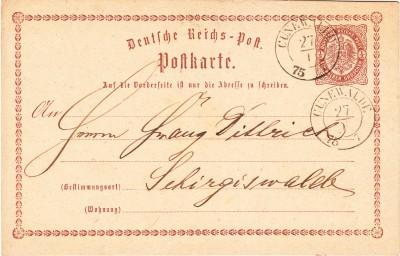 Deutsche Reichs-Post.
Postkarte.
Auf die Vorderseite ist nur die Adresse zu schreiben.
CUNEWALDE
27
1
75
CUNEWALDE
27
1
75
An
Herrn Franz Dittrich
(Bestimmungsort)
Schirgiswalde
(Wohnung)